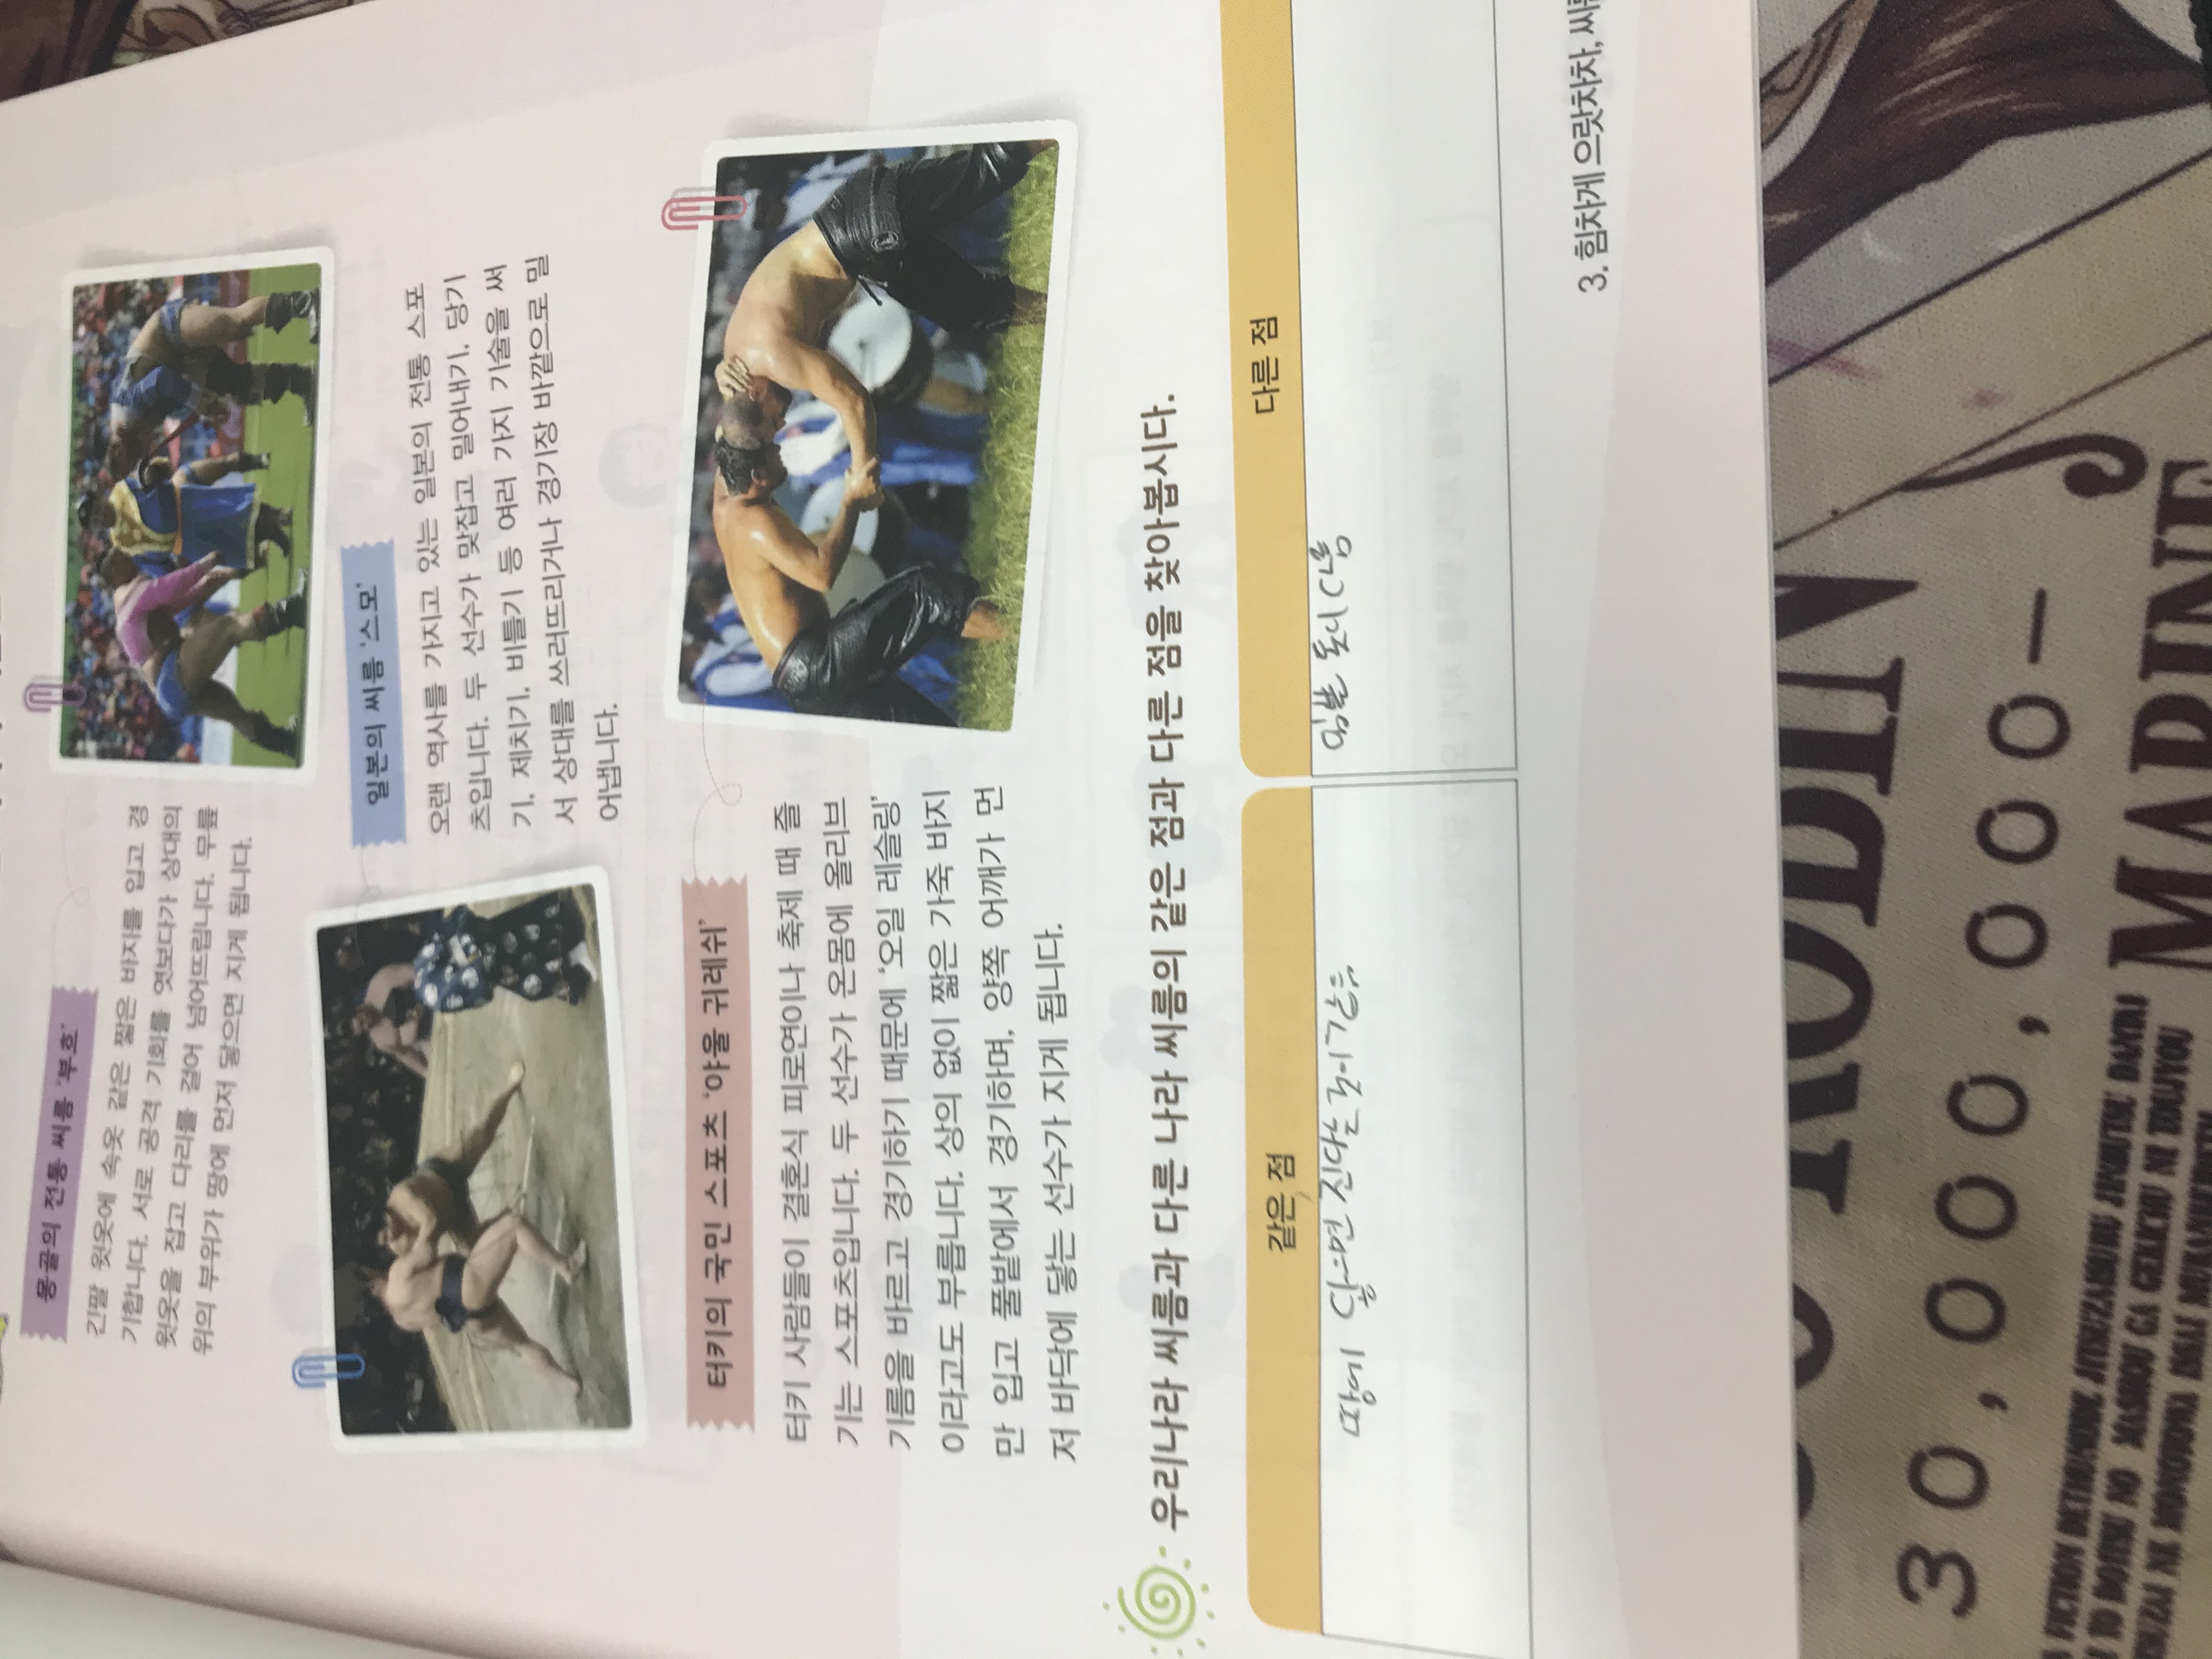 몽골의 전통 씨름 '부흐'
긴팔 윗옷에 속옷 같은 짧은 바지를 입고 경
기합니다. 서로 공격 기회를 엿보다가 상대의
윗옷을 잡고 다리를 걸어 넘어뜨립니다. 무릎
위의 부위가 땅에 먼저 닿으면 지게 됩니다.
일본의 씨름 '스모'
오랜 역사를 가지고 있는 일본의 전통 스포
츠입니다. 두 선수가 맞잡고 밀어내기, 당기
기, 제치기, 비틀기 등 여러 가지 기술을 써
서 상대를 쓰러뜨리거나 경기장 바깥으로 밀
어냅니다.
터키의 국민 스포츠 '야울 귀레쉬'
터키 사람들이 결혼식 피로연이나 축제 때 즐
기는 스포츠입니다. 두 선수가 온몸에 올리브
기름을 바르고 경기하기 때문에 '오일 레슬링'
이라고도 부릅니다. 상의 없이 짧은 가죽 바지
만 입고 풀밭에서 경기하며, 양쪽 어깨가 먼
저 바닥에 닿는 선수가 지게 됩니다.
우리나라 씨름과 다른 나라 씨름의 같은 점과 다른 점을 찾아봅시다.
같은 점
다른 점
땅에 닿으면 진다는 것이 같음
입는 옷이 다름
3. 힘차게 으랏차차, 씨름
ROBIN
30,000,000-
FICTION DETHUNODE JITSUZAISURU JINBUTSU DANTAI
TO DOITSU NO MASHOU GA GEKICHU NI TOUJYOU
MARINE